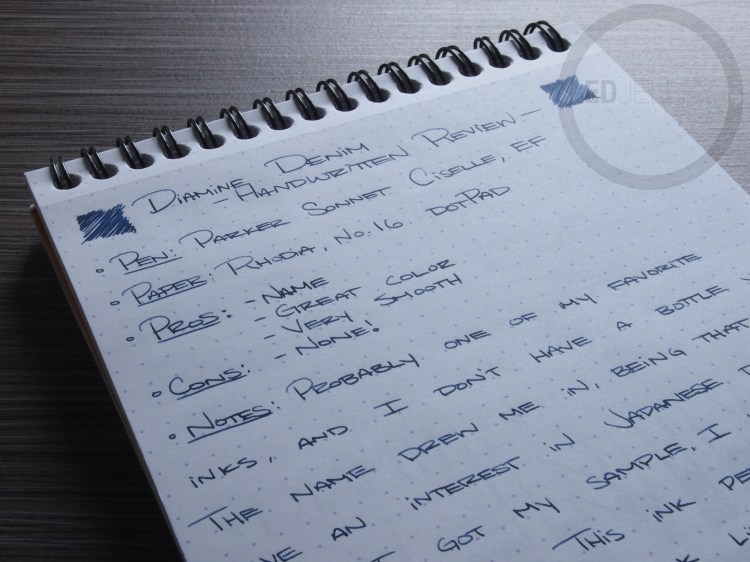 Diamine Denim
- Handwritten Review -
• Pen: Parker Sonnet Ciselle, EF
• Paper: Rhodia, No. 16 dotPad
• Pros: - Name
- Great color
- Very smooth
• Cons: - None!
• Notes: Probably one of my favorite
inks, and I don't have a bottle
The name drew me in, being that
an interest in Japanese
got my sample, I
This ink
ED